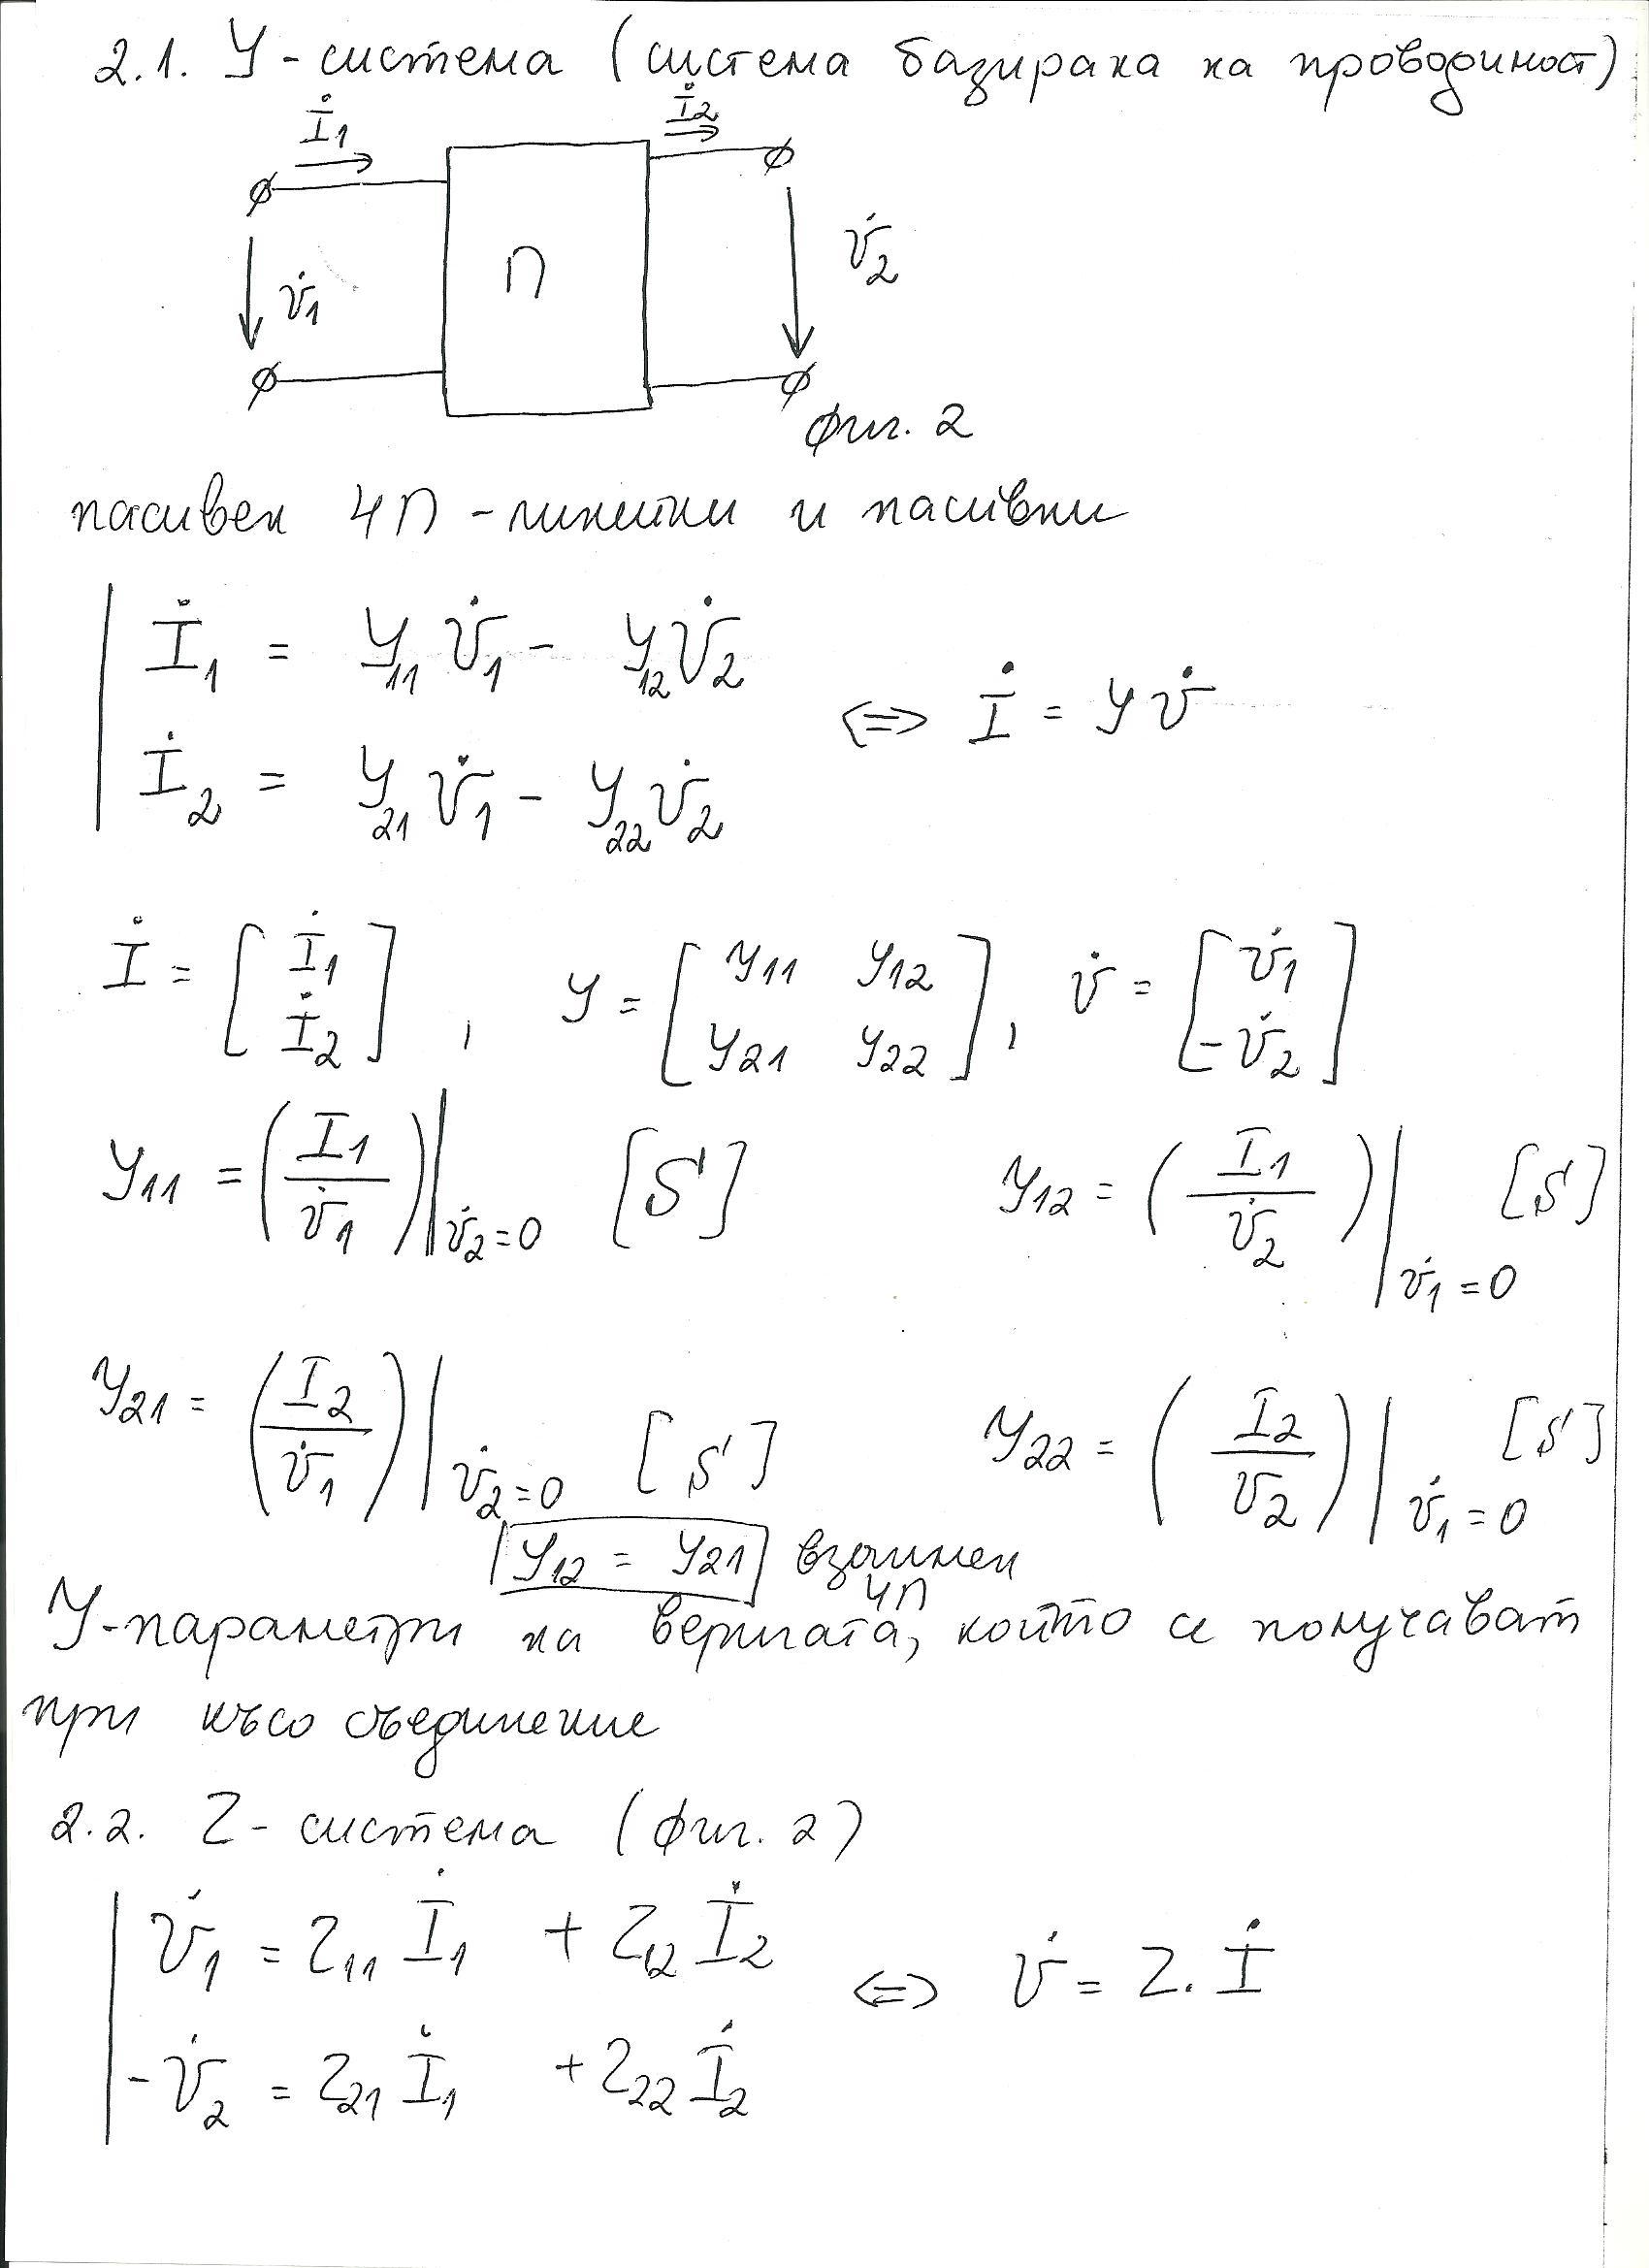 2.1. У-система (система базирана на проводимост)
İ1 İ2
V̇1 П V̇2
фиг. 2
пасивен 4П - линейни и пасивни
İ1 = У11 V̇1 - У12 V̇2
<=> İ = У V̇
İ2 = У21 V̇1 - У22 V̇2
İ = [İ1 İ2], У = [У11 У12 У21 У22], V̇ = [V̇1 -V̇2]
У11 = (I1 / V̇1)|V̇2=0 [S] У12 = (I1 / V̇2)|V̇1=0 [S]
У21 = (I2 / V̇1)|V̇2=0 [S] У22 = (I2 / V2)|V̇1=0 [S]
У12 = У21 взаимен 4П
У-параметри на веригата, които се получават
при късо съединение
2.2. Z-система (фиг. 2)
V̇1 = Z11 İ1 + Z12 İ2
<=> V̇ = Z. İ
-V̇2 = Z21 İ1 + Z22 İ2